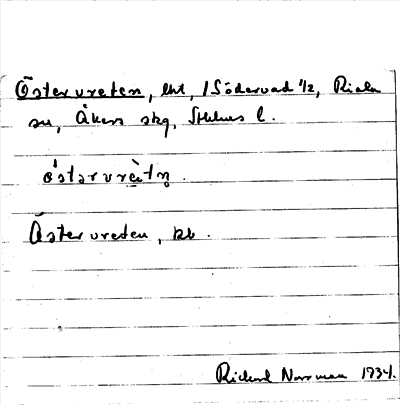 Östervreten, lht, 1 Södervad 1/2, Riala
sn, Åkers skg, Sthlms l.
östərvrètn̥.
Östervreten, kb.
Rickard Norrman 1934.